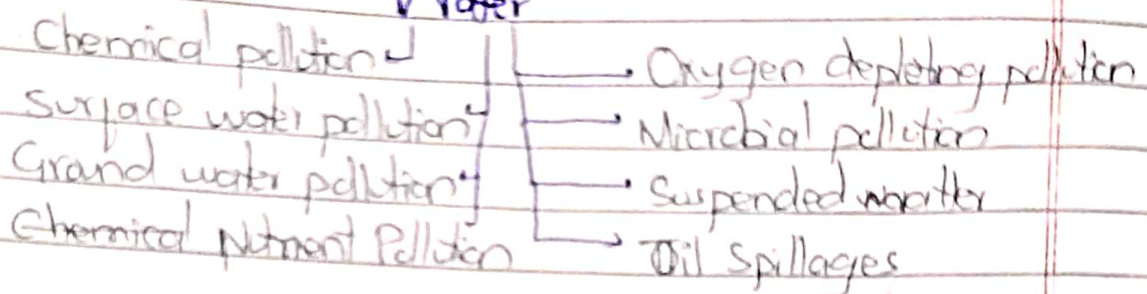 Water
Chemical pollution
Surface water pollution
Grand water pollution
Chemical Nutrient Pollution
Oxygen depleting pollution
Microbial pollution
Suspended matter
Oil Spillages